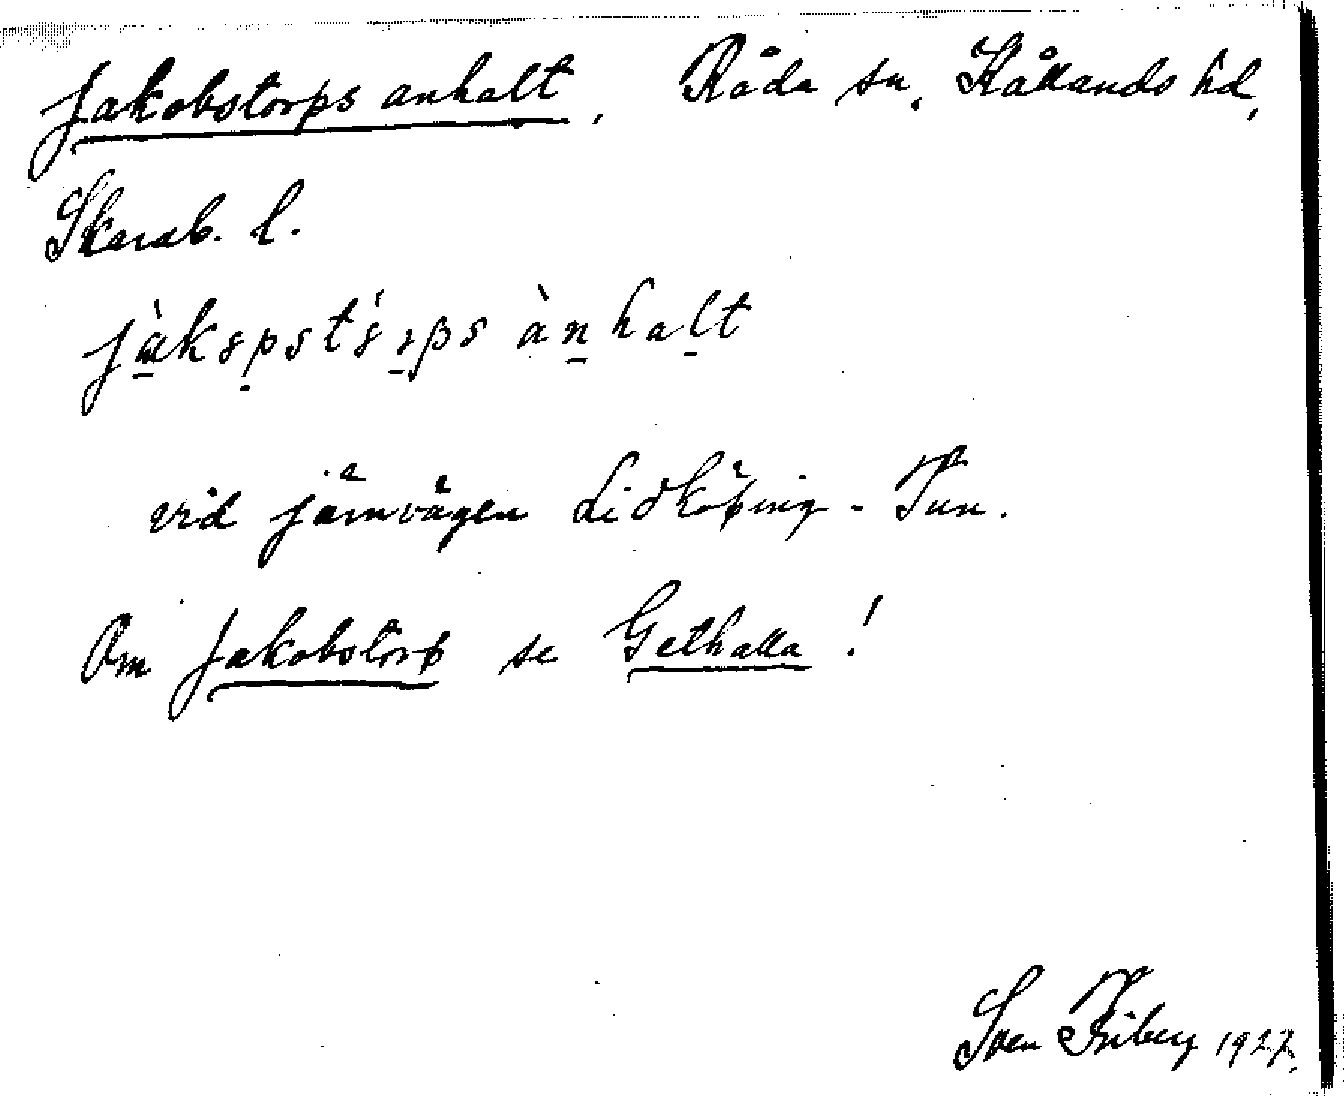 Jakobstorps anhalt, Råda sn, Kållands hd,
Skarab. l.
jàkɞpstɞ́rps ànhalt
vid järnvägen Lidköping - Tun.
Om Jakobstorp se Gethalla!
Sven Friberg 1927.